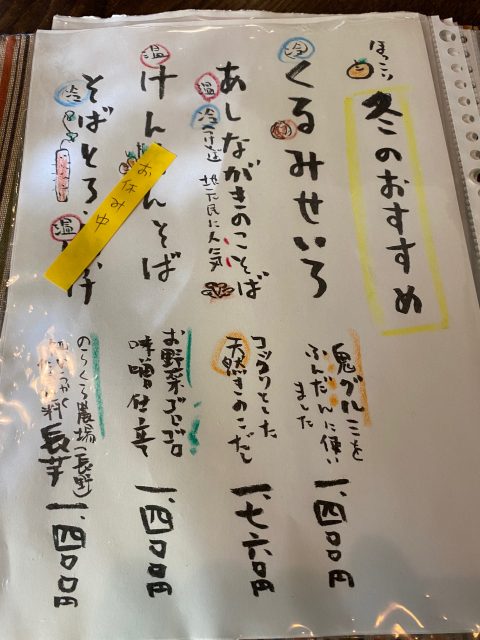 ほっこり
冬のおすすめ
冷
くるみせいろ
鬼グルミを
ふんだんに使い
ました
一、四〇〇円
温
冷
あしながきのこそば
地元民に人気
コックリとした
天然きのこだし
一、七六〇円
温
けん
んそば
お休み中
お野菜ゴロゴロ
味噌仕立て
一、四〇〇円
冷
温
そばとろ
のらくら農場(長野)
長芋
一、四〇〇円